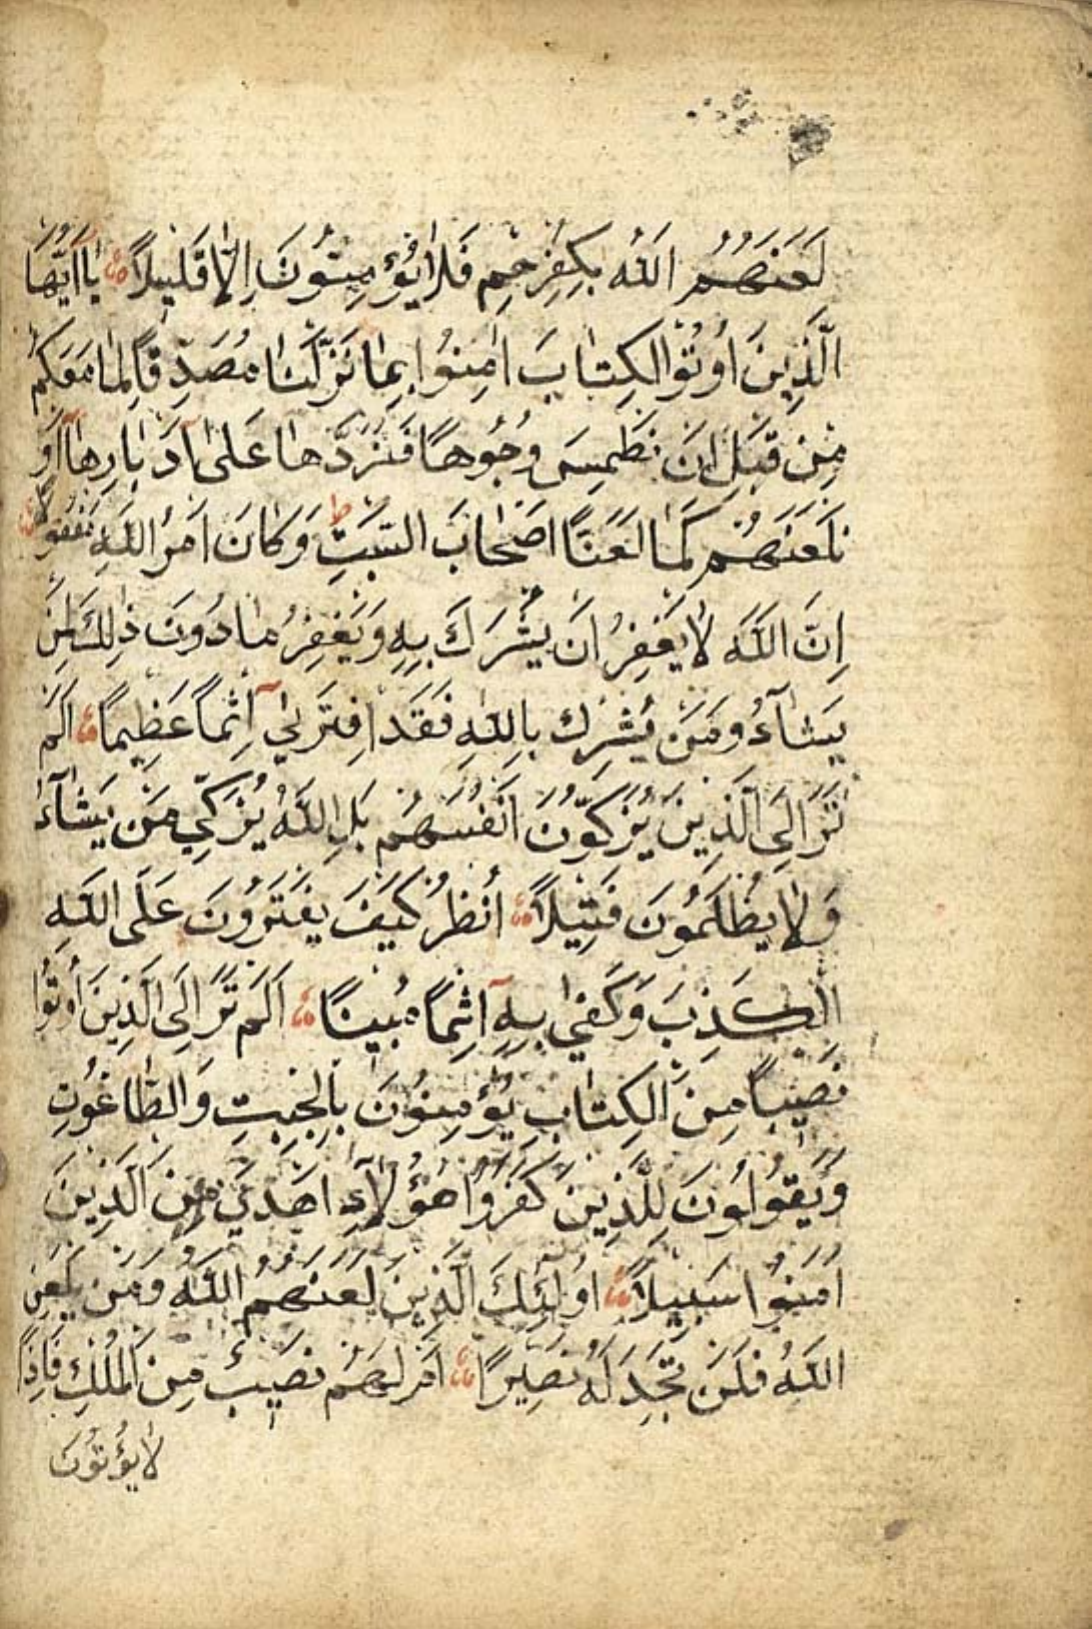 لَعَنَهُمُ اللّٰهُ بِكُفْرِهِمْ فَلَا يُؤْمِنُونَ اِلَّا قَلِيلًا يَا اَيُّهَا
الَّذِينَ اُوتُوا الْكِتَابَ اٰمِنُوا بِمَا نَزَّلْنَا مُصَدِّقًا لِمَا مَعَكُمْ
مِنْ قَبْلِ اَنْ نَطْمِسَ وُجُوهًا فَنَرُدَّهَا عَلٰى اَدْبَارِهَا اَوْ
نَلْعَنَهُمْ كَمَا لَعَنَّا اَصْحَابَ السَّبْتِ وَكَانَ اَمْرُ اللّٰهِ مَفْعُولًا
اِنَّ اللّٰهَ لَا يَغْفِرُ اَنْ يُشْرَكَ بِهِ وَيَغْفِرُ مَا دُونَ ذٰلِكَ لِمَنْ
يَشَآءُ وَمَنْ يُشْرِكْ بِاللّٰهِ فَقَدِ افْتَرٰىٓ اِثْمًا عَظِيمًا اَلَمْ
تَرَ اِلَى الَّذِينَ يُزَكُّونَ اَنْفُسَهُمْ بَلِ اللّٰهُ يُزَكِّي مَنْ يَشَآءُ
وَلَا يُظْلَمُونَ فَتِيلًا اُنْظُرْ كَيْفَ يَفْتَرُونَ عَلَى اللّٰهِ
الْكَذِبَ وَكَفٰى بِهِٓ اِثْمًا مُبِينًا اَلَمْ تَرَ اِلَى الَّذِينَ اُوتُوا
نَصِيبًا مِنَ الْكِتَابِ يُؤْمِنُونَ بِالْجِبْتِ وَالطَّاغُوتِ
وَيَقُولُونَ لِلَّذِينَ كَفَرُوا هٰؤُلَآءِ اَهْدٰى مِنَ الَّذِينَ
اٰمَنُوا سَبِيلًا اُولٰٓئِكَ الَّذِينَ لَعَنَهُمُ اللّٰهُ وَمَنْ يَلْعَنِ
اللّٰهُ فَلَنْ تَجِدَ لَهُ نَصِيرًا اَمْ لَهُمْ نَصِيبٌ مِنَ الْمُلْكِ فَاِذًا
لَا يُؤْتُونَ